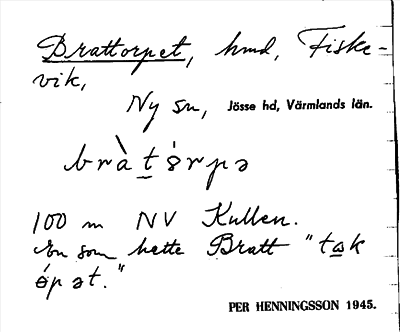 Brattorpet, hmd, Fiske-
vik,
Ny sn, Jösse hd, Värmlands län.
bràt órpə
100 m NV Kullen.
En som hette Bratt "tak
ópət."
PER HENNINGSSON 1945.